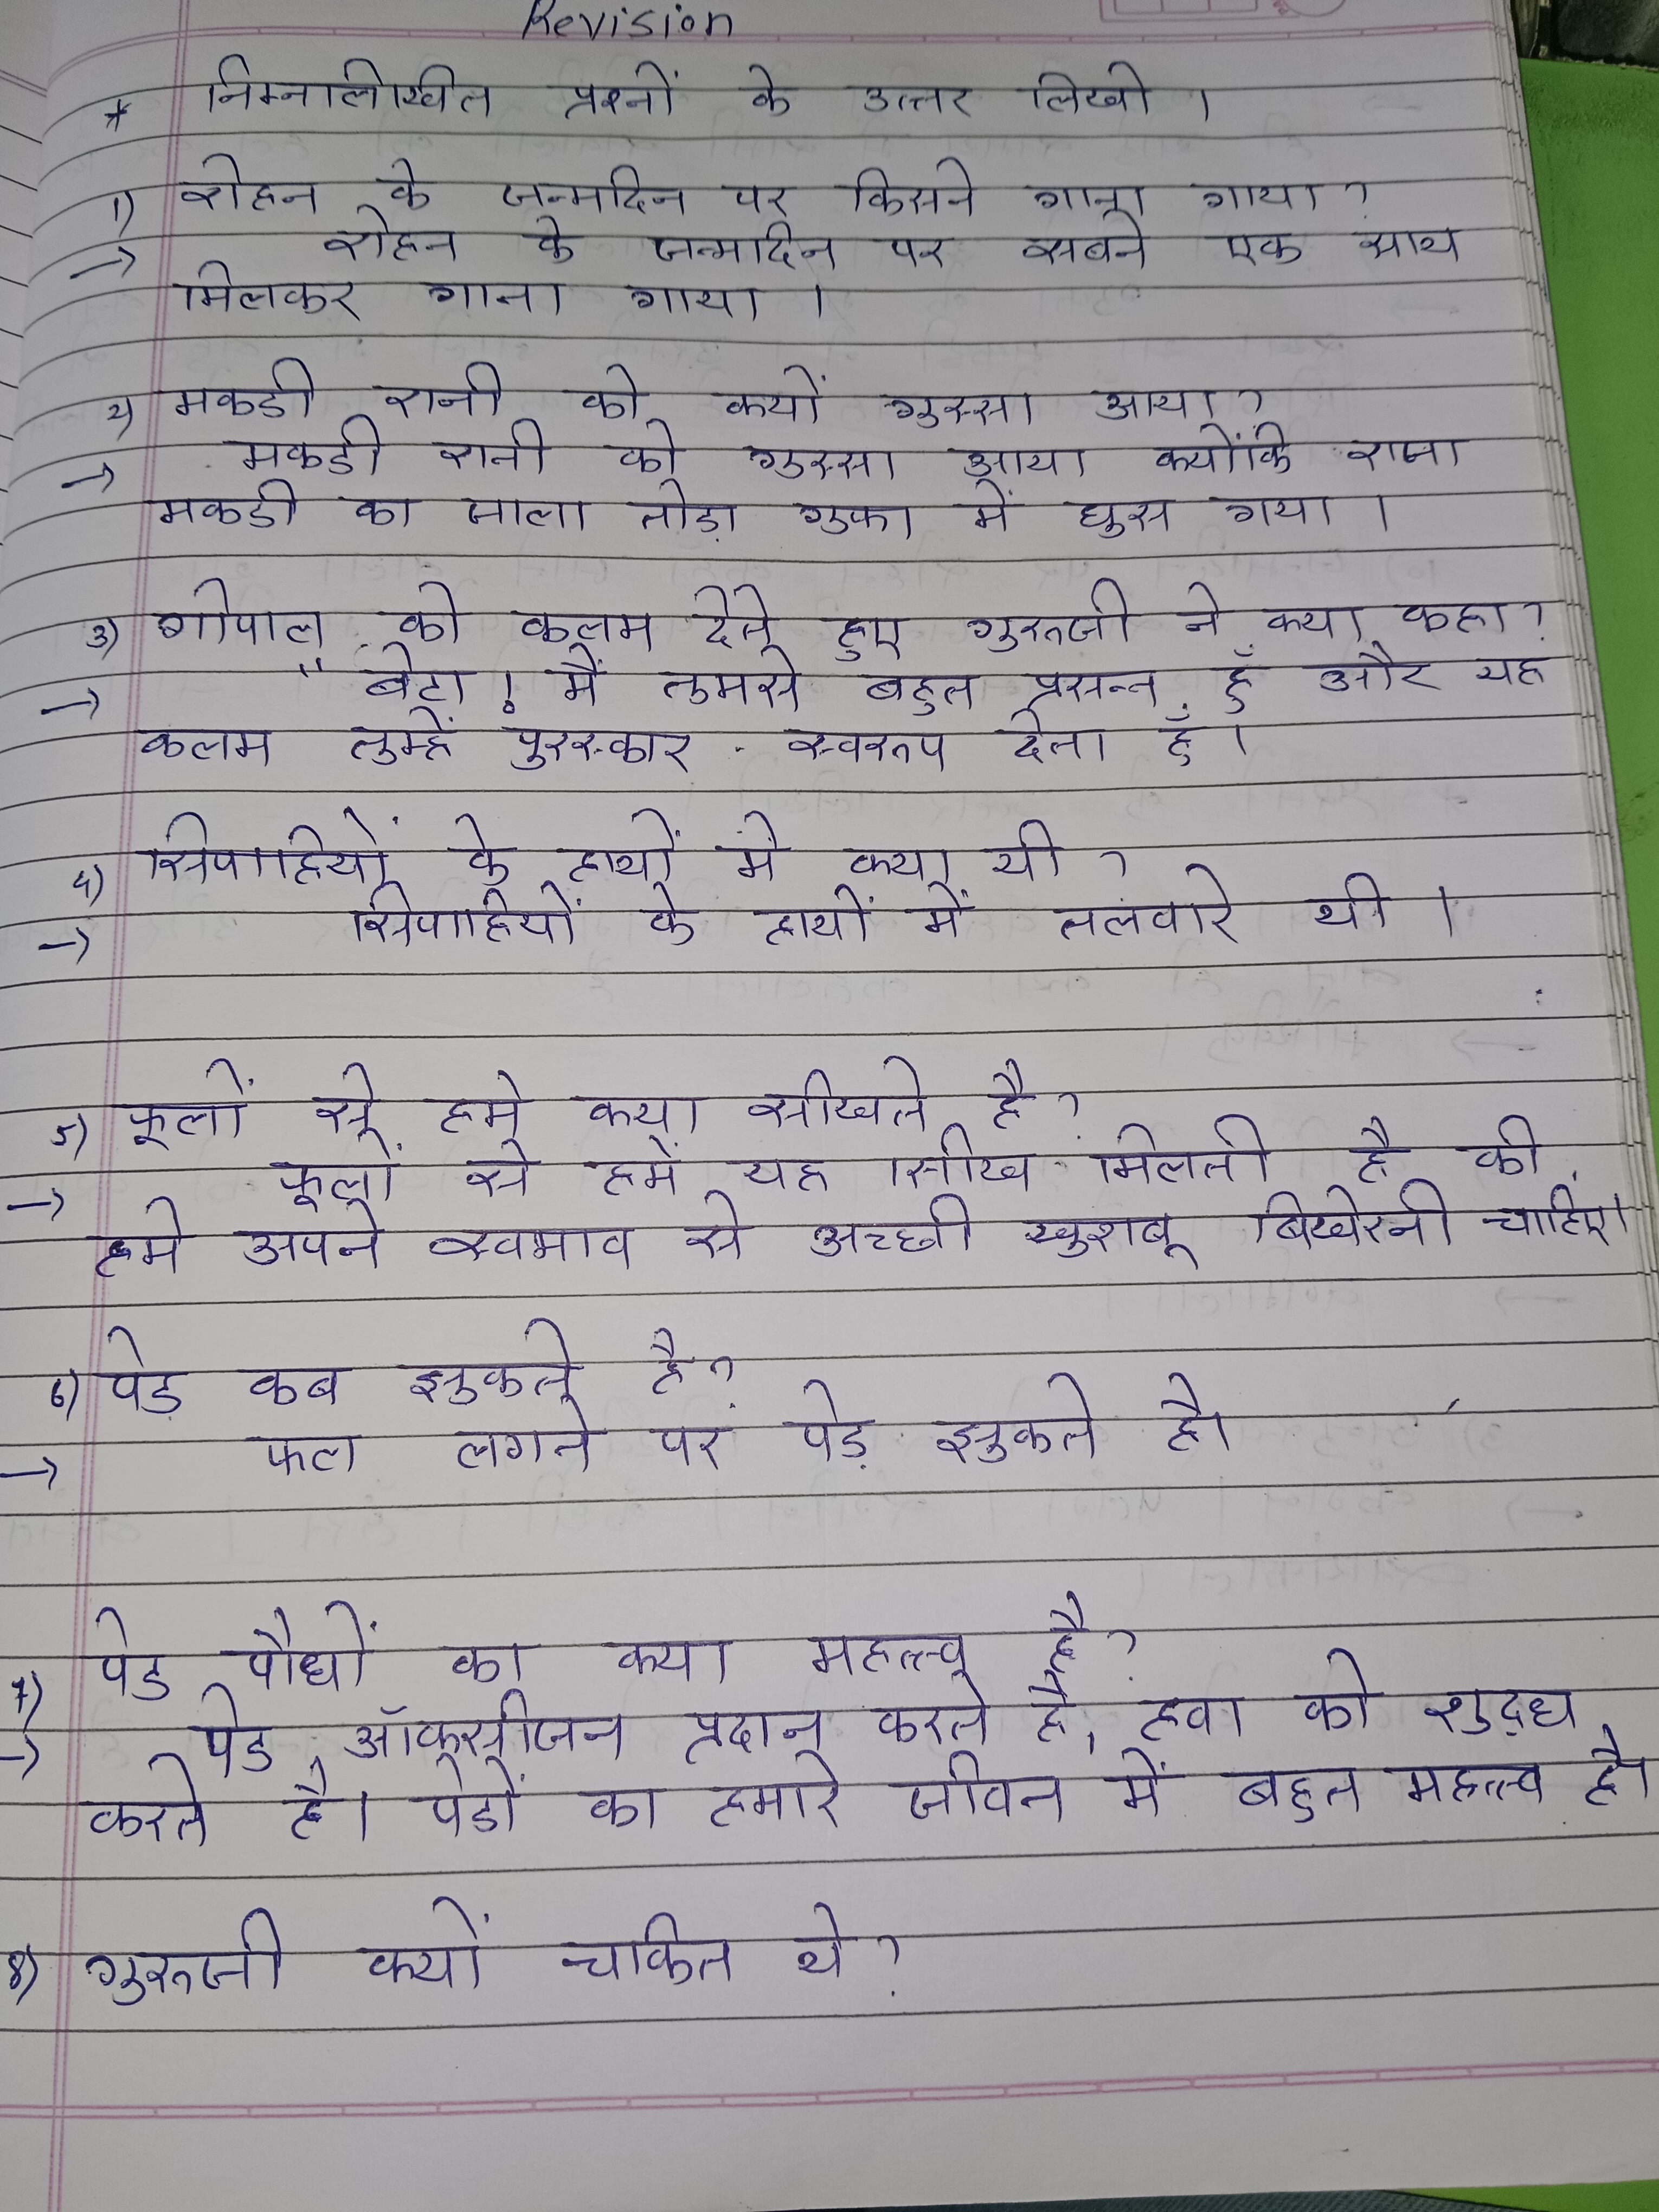 Revision
* निम्नलिखित प्रश्नों के उत्तर लिखो ।
1) रोहन के जन्मदिन पर किसने गाना गाया ?
→ रोहन के जन्मदिन पर सबने एक साथ
मिलकर गाना गाया ।
2) मकडी रानी को क्यों गुस्सा आया ?
→ मकडी रानी को गुस्सा आया क्योंकि राजा
मकडी का जाला तोड़ा गुफा में घुस गया ।
3) गोपाल को कलम देते हुए गुरुजी ने क्या कहा ?
→ " बेटा ! मैं तुमसे बहुत प्रसन्न हूँ और यह
कलम तुम्हें पुरस्कार - स्वरुप देता हूँ ।
4) सिपाहियों के हाथों में क्या थी ?
→ सिपाहियों के हाथों में तलवारे थी ।
5) फूलों से हमे क्या सीखते है ?
→ फूलों से हमें यह सीख मिलती है की
हमे अपने स्वभाव से अच्छी खुशबू बिखेरनी चाहिए।
6) पेड़ कब झुकते है ?
→ फल लगने पर पेड़ झुकते है।
7) पेड पौधों का क्या महत्त्व है ?
→ पेड ऑक्सीजन प्रदान करते है, हवा को शुद्ध
करते है। पेडों का हमारे जीवन में बहुत महत्त्व है।
8) गुरुजी क्यों चकित थे ?